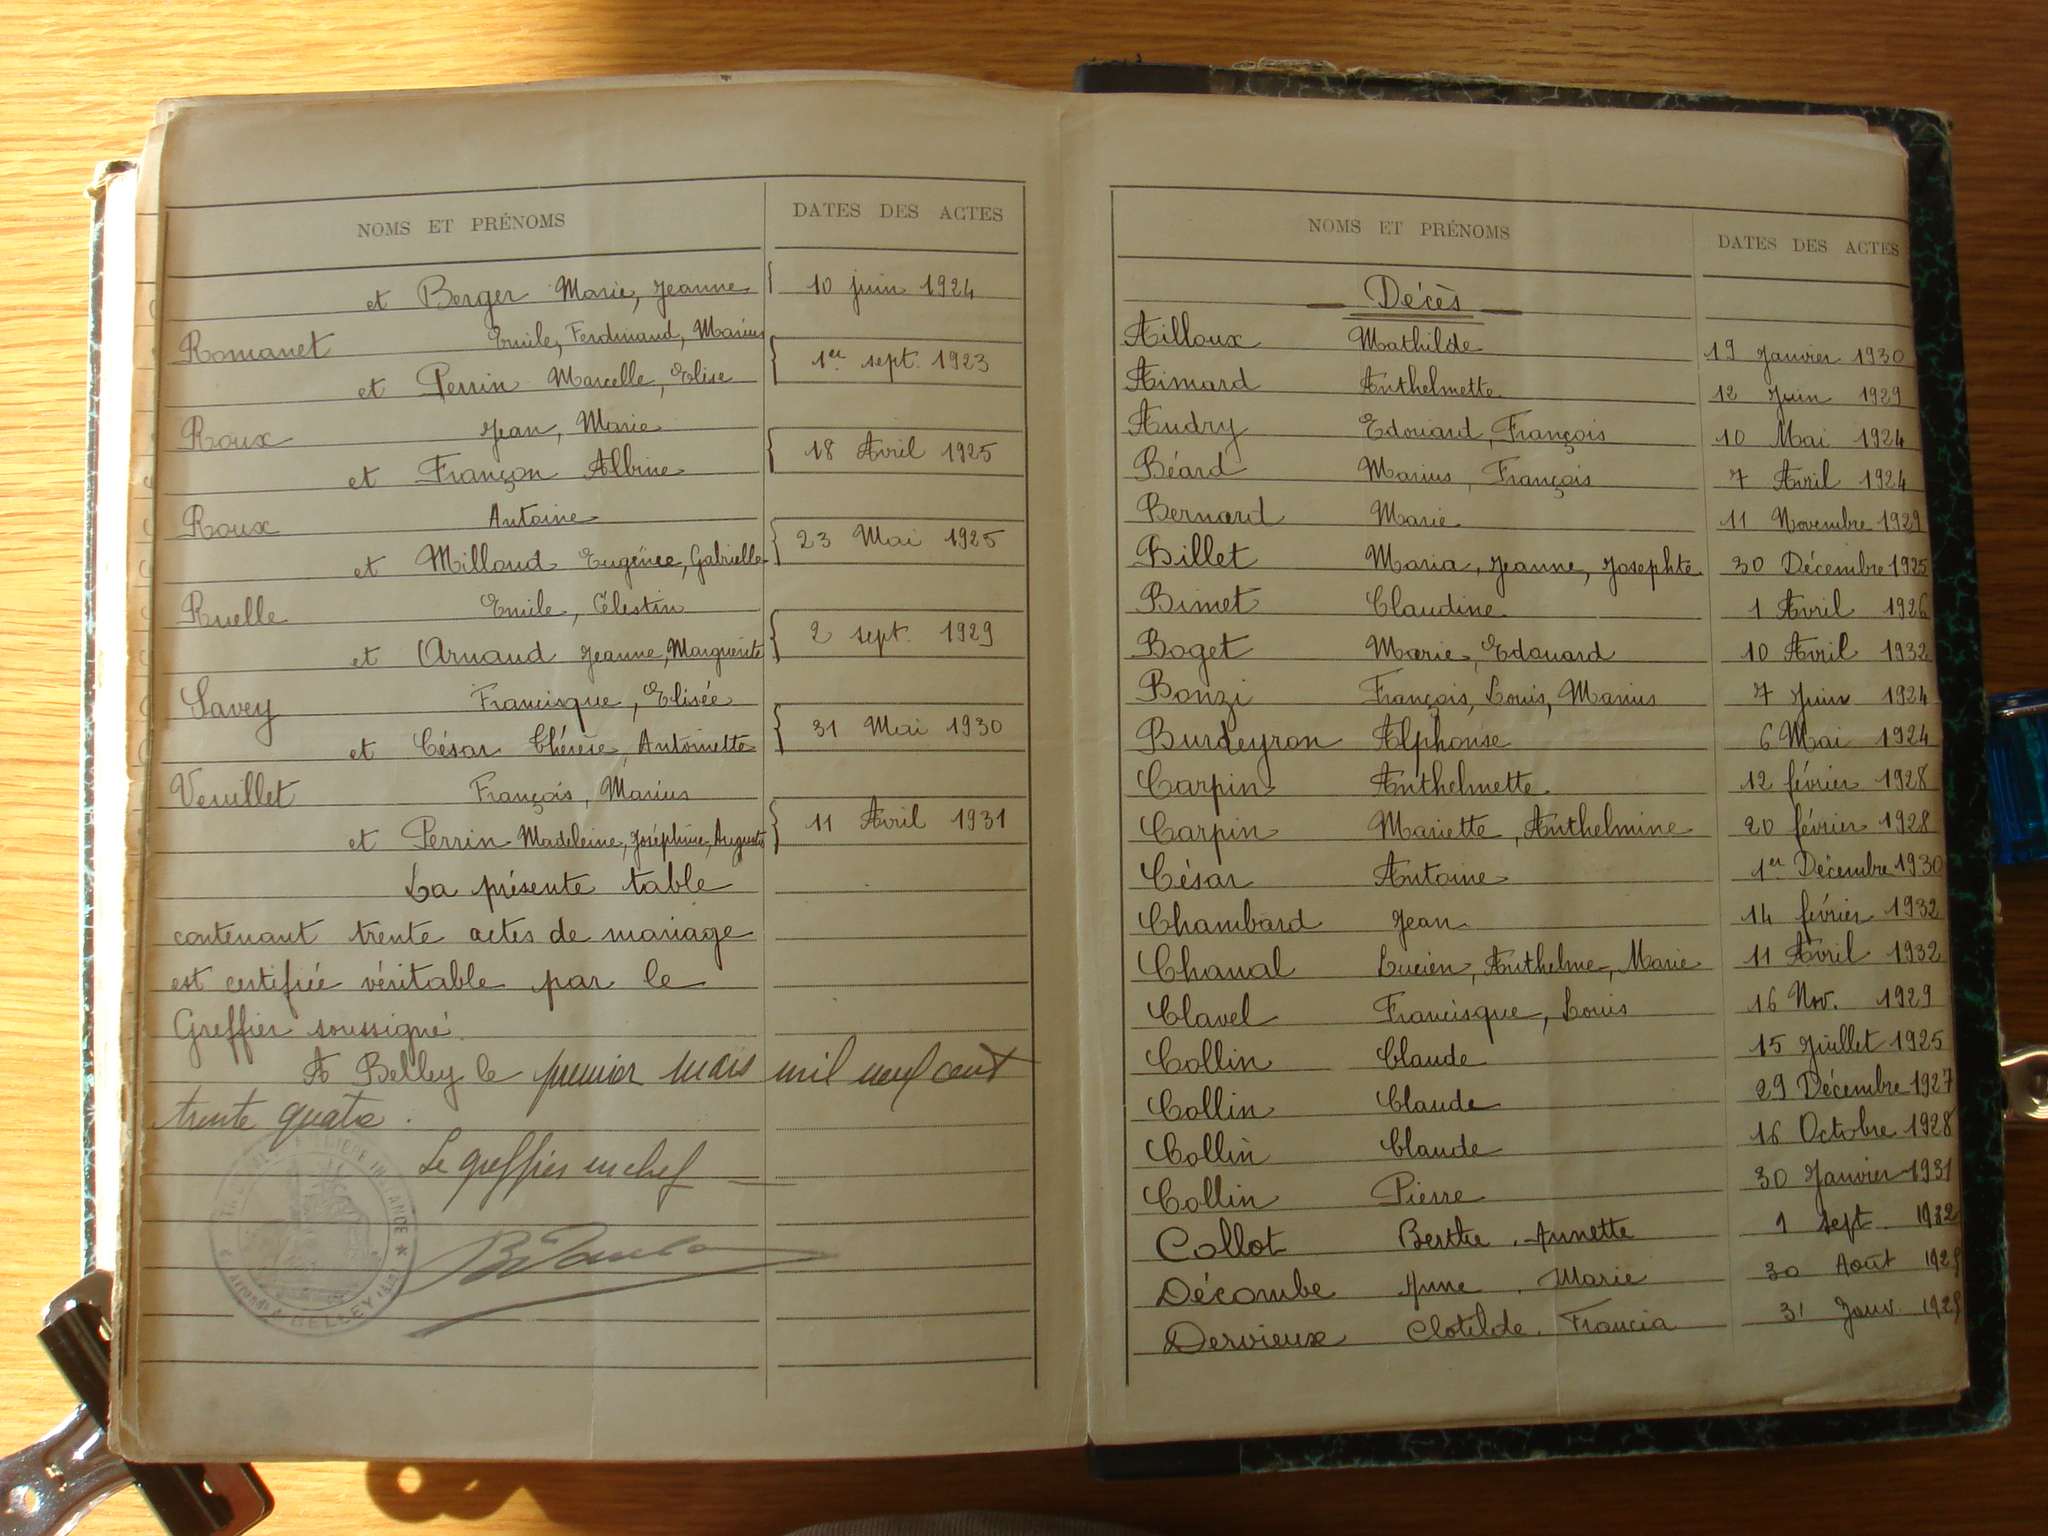 NOMS ET PRÉNOMS DATES DES ACTES
et Berger Marie, Jeanne 10 juin 1924
Romanet Emile, Ferdinand, Marius
et Perrin Marcelle, Elise 1er sept. 1923
Roux Jean, Marie
et Françon Albine 18 Avril 1925
Roux Antoine
et Milloud Eugénie, Gabrielle 23 Mai 1925
Ruelle Emile, Célestin
et Arnaud Jeanne, Marguerite 2 sept. 1929
Savey Francisque, Elisée
et César Thérèse, Antoinette 31 Mai 1930
Veuillet François, Marius
et Perrin Madeleine, Joséphine, Augusta 11 Avril 1931
La présente table
contenant trente actes de mariage
est certifiée véritable par le
Greffier soussigné.
A Belley le premier mars mil neuf cent
trente quatre.
Le greffier en chef
BELLEY
NOMS ET PRÉNOMS DATES DES ACTES
Décès
Ailloux Mathilde 19 Janvier 1930
Aimard Anthelmette 12 Juin 1929
Audry Edouard, François 10 Mai 1924
Béard Marius, François 7 Avril 1924
Bernard Marie 11 Novembre 1929
Billet Maria, Jeanne, Josephte 30 Décembre 1925
Bimet Claudine 1 Avril 1926
Boget Marie, Edouard 10 Avril 1932
Bonzi François, Louis, Marius 7 Juin 1924
Burdeyron Alphonse 6 Mai 1924
Carpin Anthelmette 12 février 1928
Carpin Mariette, Anthelmine 20 février 1928
César Antoine 1er Décembre 1930
Chambard Jean 14 février 1932
Chaval Lucien, Anthelme, Marie 11 Avril 1932
Clavel Francisque, Louis 16 Nov. 1929
Collin Claude 15 Juillet 1925
Collin Claude 29 Décembre 1927
Collin Claude 16 Octobre 1928
Collin Pierre 30 Janvier 1931
Collot Berthe, Annette 1 Sept. 1932
Décombe Anne, Marie 30 Août
Dervieux Clotilde, Francia 31 Janv.